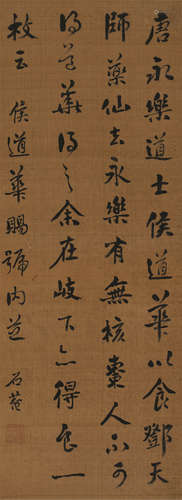 唐永樂道士侯道華以食鄧天
師藥仙去永樂有無核棗人不可
得道華得之余在岐下亦得食一
枚云 侯道華賜號內芝 石菴